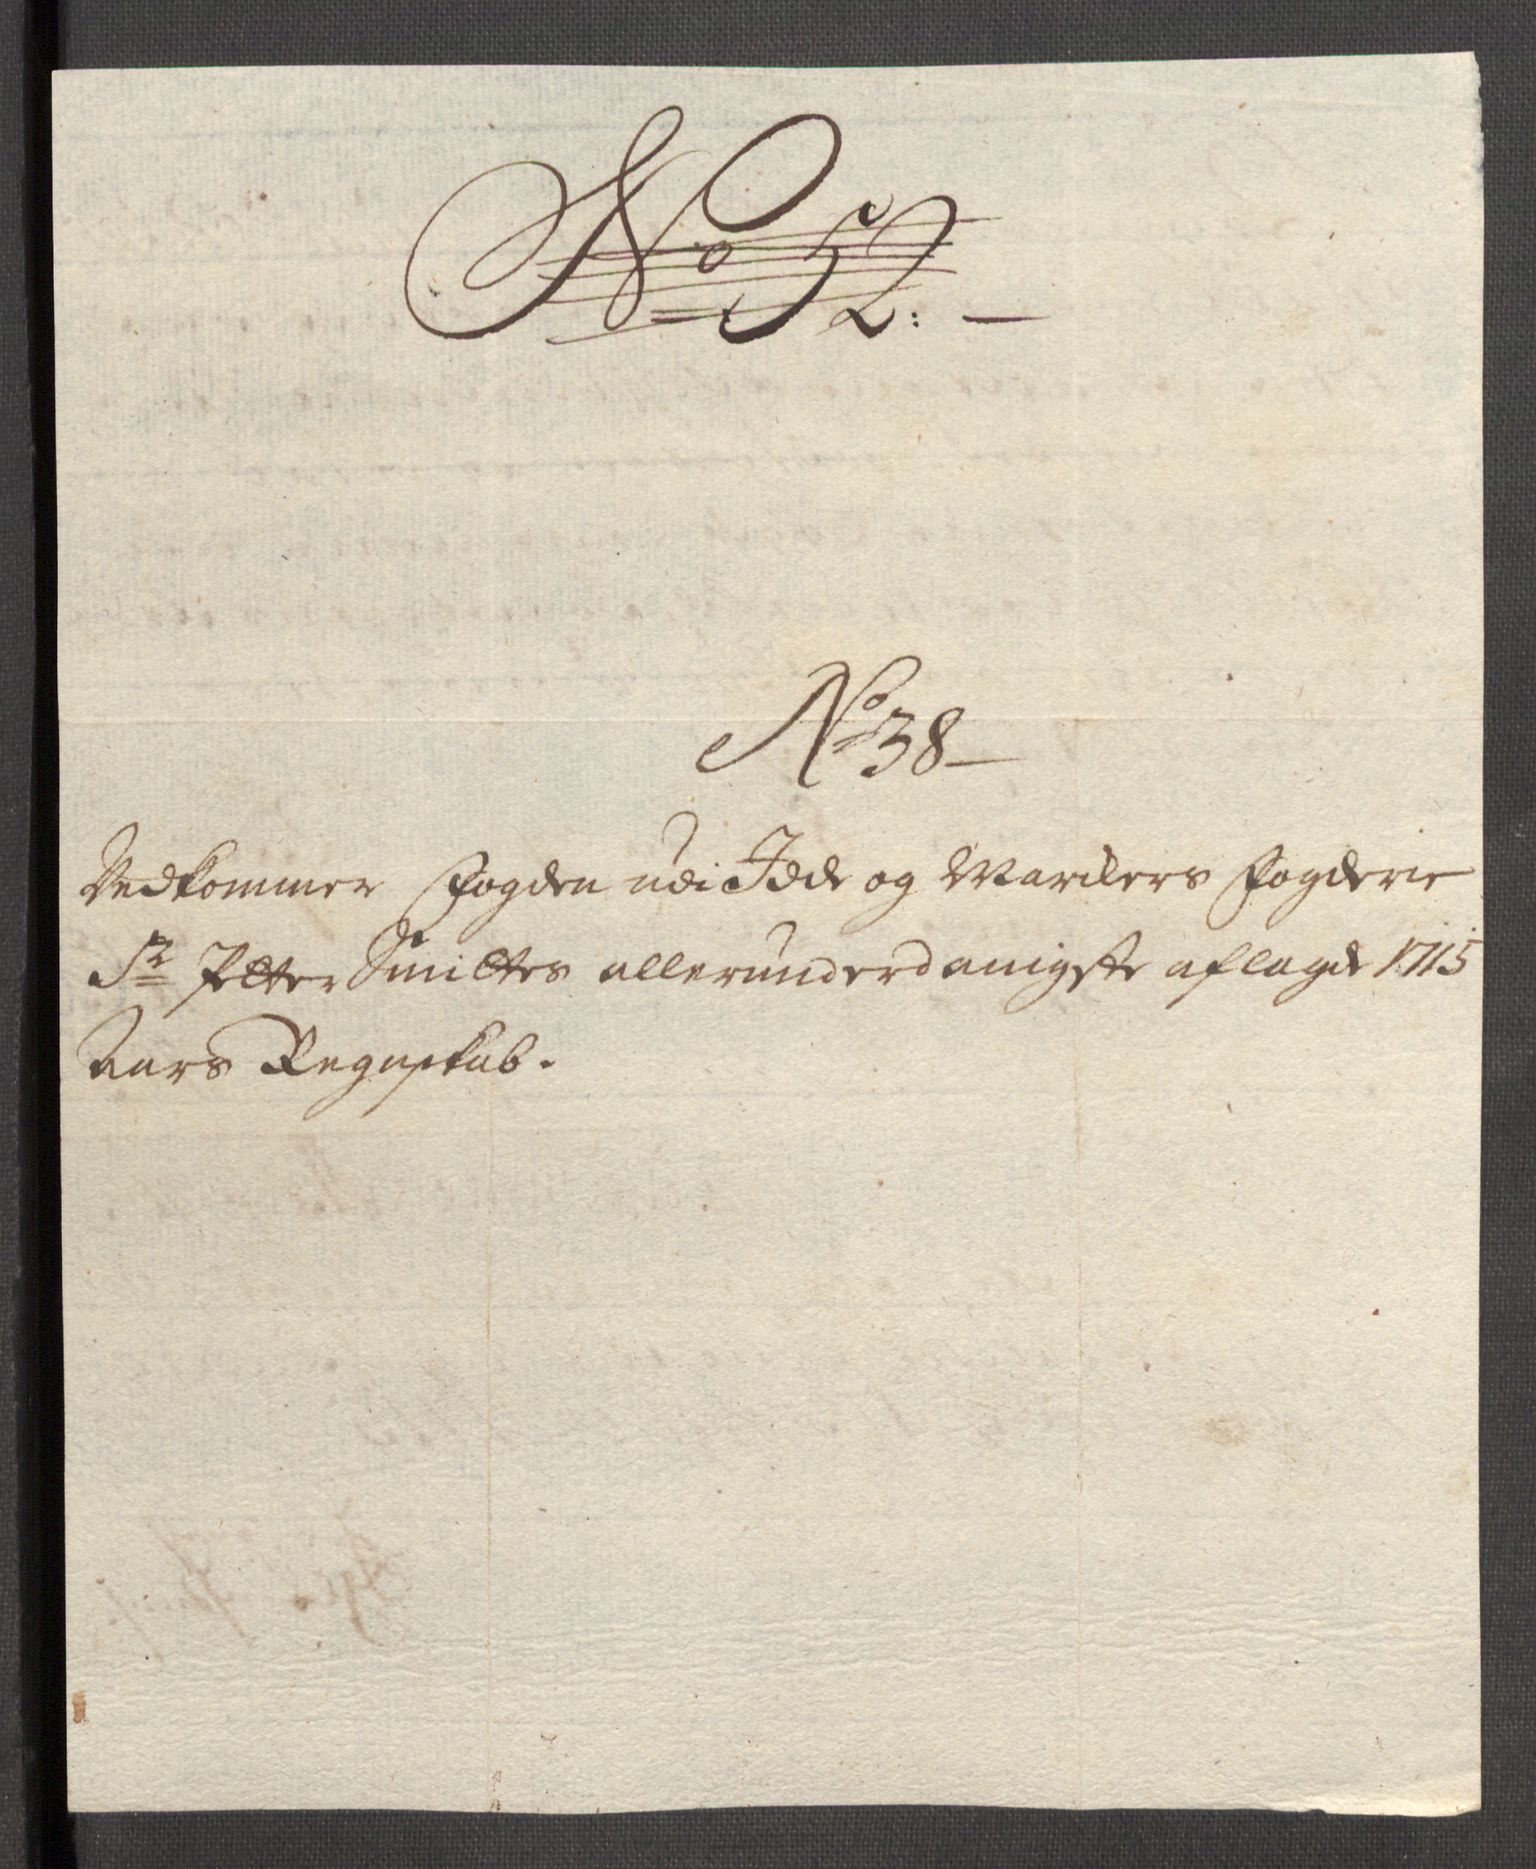 No 52: —
No 38 —
Vedkommer Fogden udi Idde og Marckers Fogderie
Sr Petter Smittes allerunderdanigste aflagde 1715
Aars Regnskab.